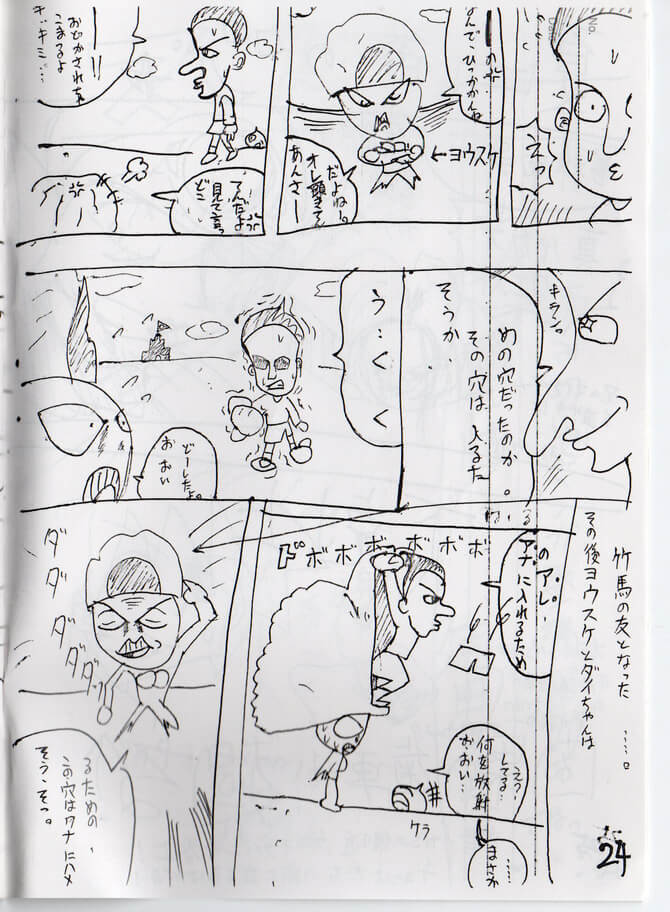 えっ
なんで、ひっかかんねー
の
←ヨウスケ
だよねー。
オレ頭きてん
あんさー
おどかされちゃ
こまるよ
キ・キミ…
てんだよ
見て言っ
どこ
キラン。
めの穴だったのか。
その穴は入るた
そうか
う…くく
どーしたよ。
お おい
竹馬の友となった……。
その後ヨウスケとダイちゃんは
のアレ、
アナに入れるため
ドボボボボボボボ
えっ!
してる…
何を放射
お、おい…
ケラ
……
まさか
ダダダダダッ
るための、
この穴はワナにハメ
そう、そっ。
24